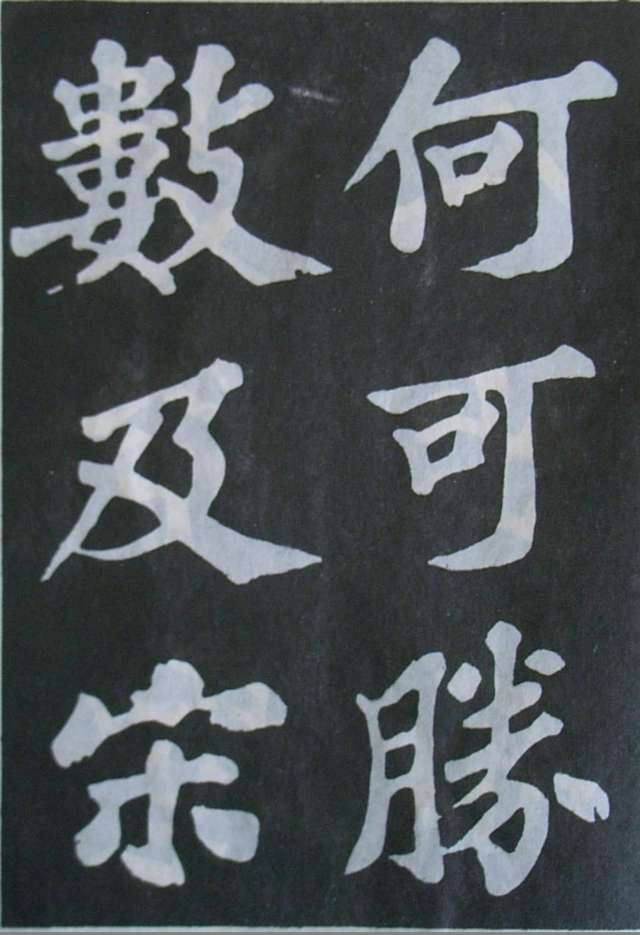 何可勝
數及宋